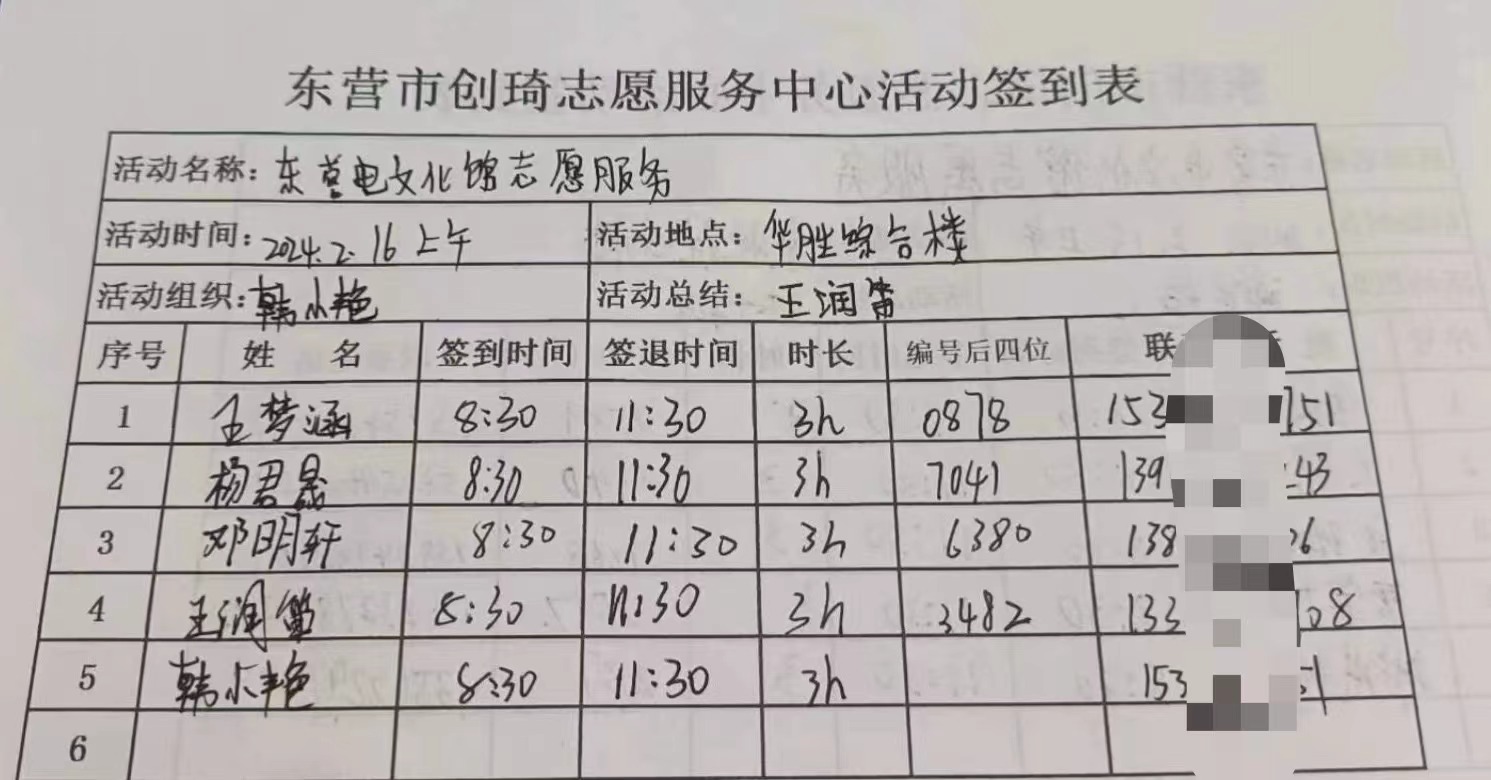 东营市创琦志愿服务中心活动签到表
活动名称：东营电文化馆志愿服务
活动时间：2024.2.16上午 活动地点：华胜综合楼
活动组织：韩小艳 活动总结：王润笛
序号 姓 名 签到时间 签退时间 时长 编号后四位 联
1 王梦涵 8:30 11:30 3h 0878 153 151
2 杨君晟 8:30 11:30 3h 7041 139 43
3 邓明轩 8:30 11:30 3h 6380 138 26
4 王润笛 8:30 11:30 3h 3482 133 08
5 韩小艳 8:30 11:30 3h 153 51
6